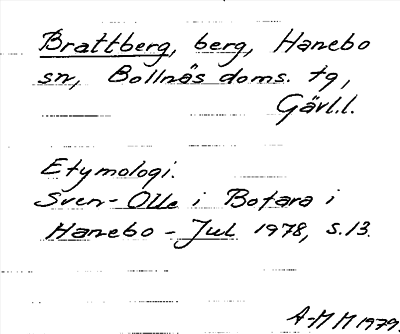 Brattberg, berg, Hanebo
sn, Bollnäs doms. tg,
Gävl.l.
Etymologi.
Sven-Olle i Botara i
Hanebo - Jul 1978, s.13.
A-M M 1979.